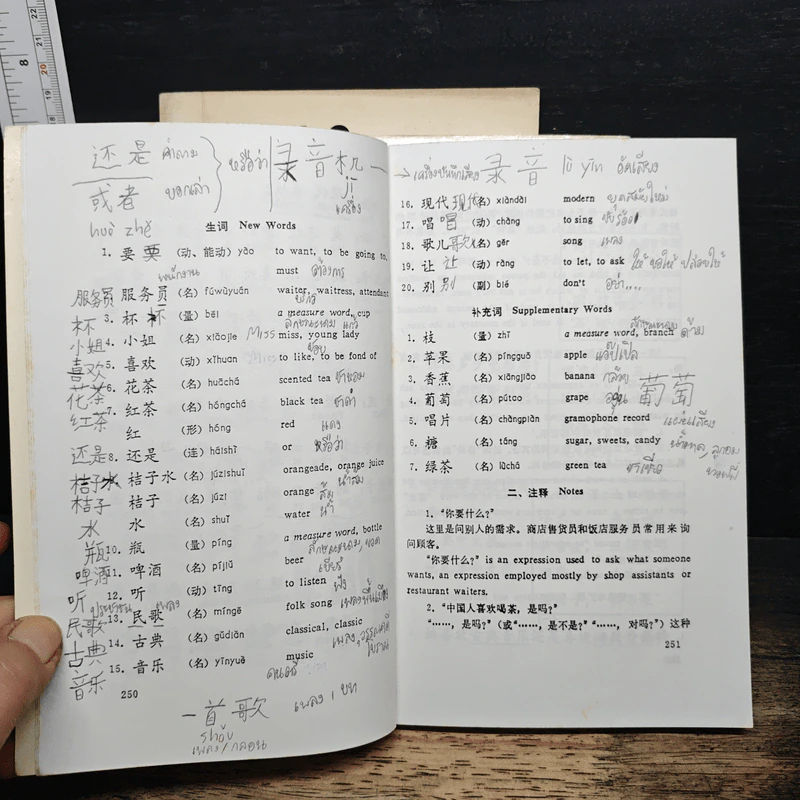 还是 คำถาม } หรือว่า 录音机
或者 บอกเล่า jī
huò zhě เครื่อง
生词 New Words
1. 要 要 (动、能动) yào to want, to be going to,
must ต้องการ
พนักงาน
服务员 服务员 (名) fúwùyuán waiter, waitress, attendant
杯 3. 杯 杯 (量) bēi a measure word, cup
ลักษณะนาม แก้ว
小姐 4. 小姐 (名) xiǎojie Miss miss, young lady
喜欢 5. 喜欢 (动) xǐhuan to like, to be fond of
ชอบ
花茶 6. 花茶 (名) huāchá scented tea ชาหอม
红茶 7. 红茶 (名) hóngchá black tea ชาดำ
红 (形) hóng red แดง
还是 8. 还是 (连) háishì or หรือว่า
桔子水 桔子水 (名) júzishuǐ orangeade, orange juice
น้ำส้ม
桔子 桔子 (名) júzi orange ส้ม
水 水 (名) shuǐ water น้ำ
瓶 10. 瓶 (量) píng a measure word, bottle
ลักษณะนาม, ขวด
啤酒 11. 啤酒 (名) píjiǔ beer เบียร์
听 12. 听 (动) tīng to listen ฟัง
ประชาชน เพลง
民歌 13. 民歌 (名) míngē folk song เพลงพื้นเมือง
古典 14. 古典 (名) gǔdiǎn classical, classic เพลง, วรรณคดี
โบราณ
音乐 15. 音乐 (名) yīnyuè music
ดนตรี
250
一首歌 เพลง 1 บท
shǒu
เพลง/กลอน
→ เครื่องบันทึกเสียง 录音 lù yīn อัดเสียง
16. 现代 现代 (名) xiàndài modern ยุคสมัยใหม่
17. 唱 唱 (动) chàng to sing ร้อง
18. 歌儿 歌 (名) gēr song เพลง
19. 让 让 (动) ràng to let, to ask ให้ ขอให้ ปล่อยให้
20. 别 别 (副) bié don't อย่า....
补充词 Supplementary Words
ลักษณะนาม
1. 枝 (量) zhī a measure word, branch ด้าม
2. 苹果 (名) píngguǒ apple แอปเปิล
3. 香蕉 (名) xiāngjiāo banana กล้วย
4. 葡萄 (名) pútao grape องุ่น 葡萄
5. 唱片 (名) chàngpiàn gramophone record แผ่นเสียง
6. 糖 (名) táng sugar, sweets, candy น้ำตาล, ลูกอม
7. 绿茶 (名) lǜchá green tea ชาเขียว
二、注释 Notes
1. “你要什么?”
这里是问别人的需求。商店售货员和饭店服务员常用来询
问顾客。
“你要什么?” is an expression used to ask what someone
wants, an expression employed mostly by shop assistants or
restaurant waiters.
2. “中国人喜欢喝茶, 是吗?”
“……, 是吗?” (或“……, 是不是?” “……, 对吗?”) 这种
251